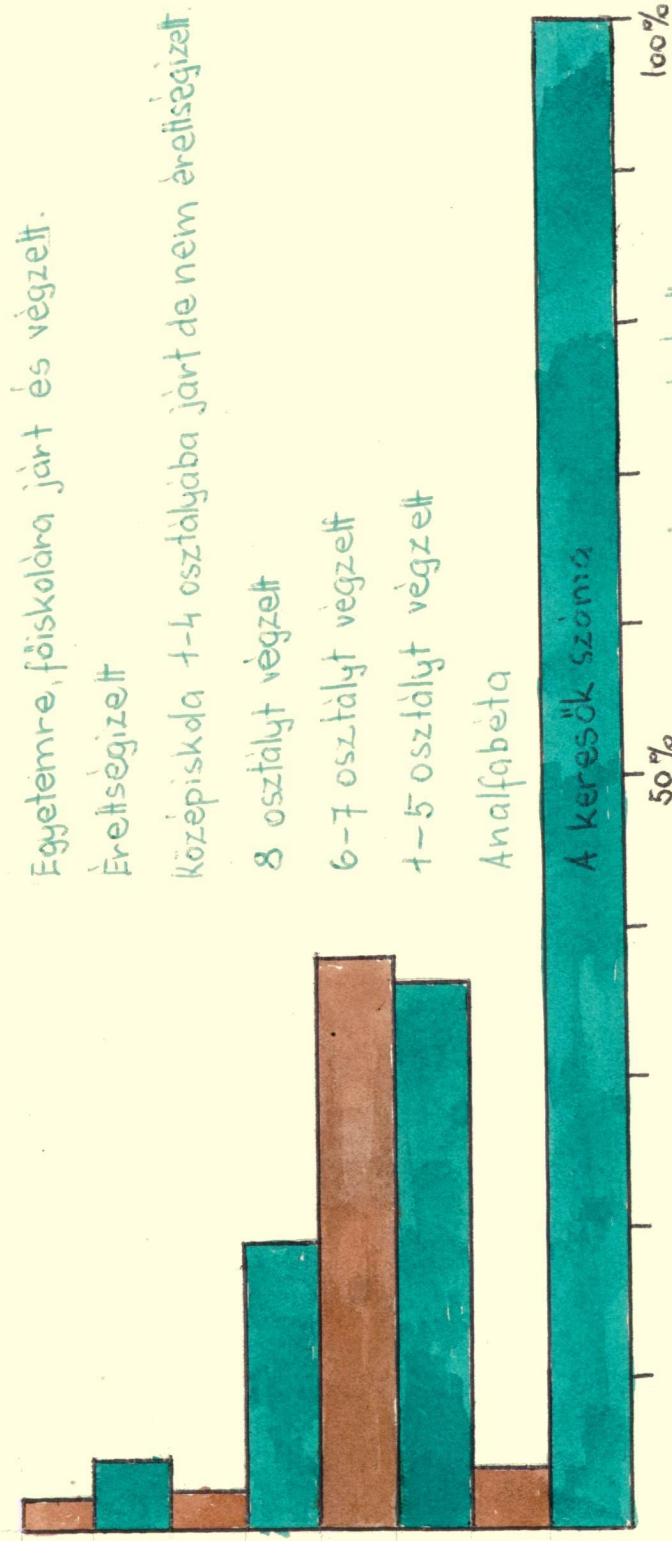 Egyetemre, főiskolára járt és végzett.
Érettségizett
Középiskola 1-4 osztályába járt de nem érettségizett.
8 osztályt végzett
6-7 osztályt végzett
1-5 osztályt végzett
Analfabéta
A keresők száma
50%
100%